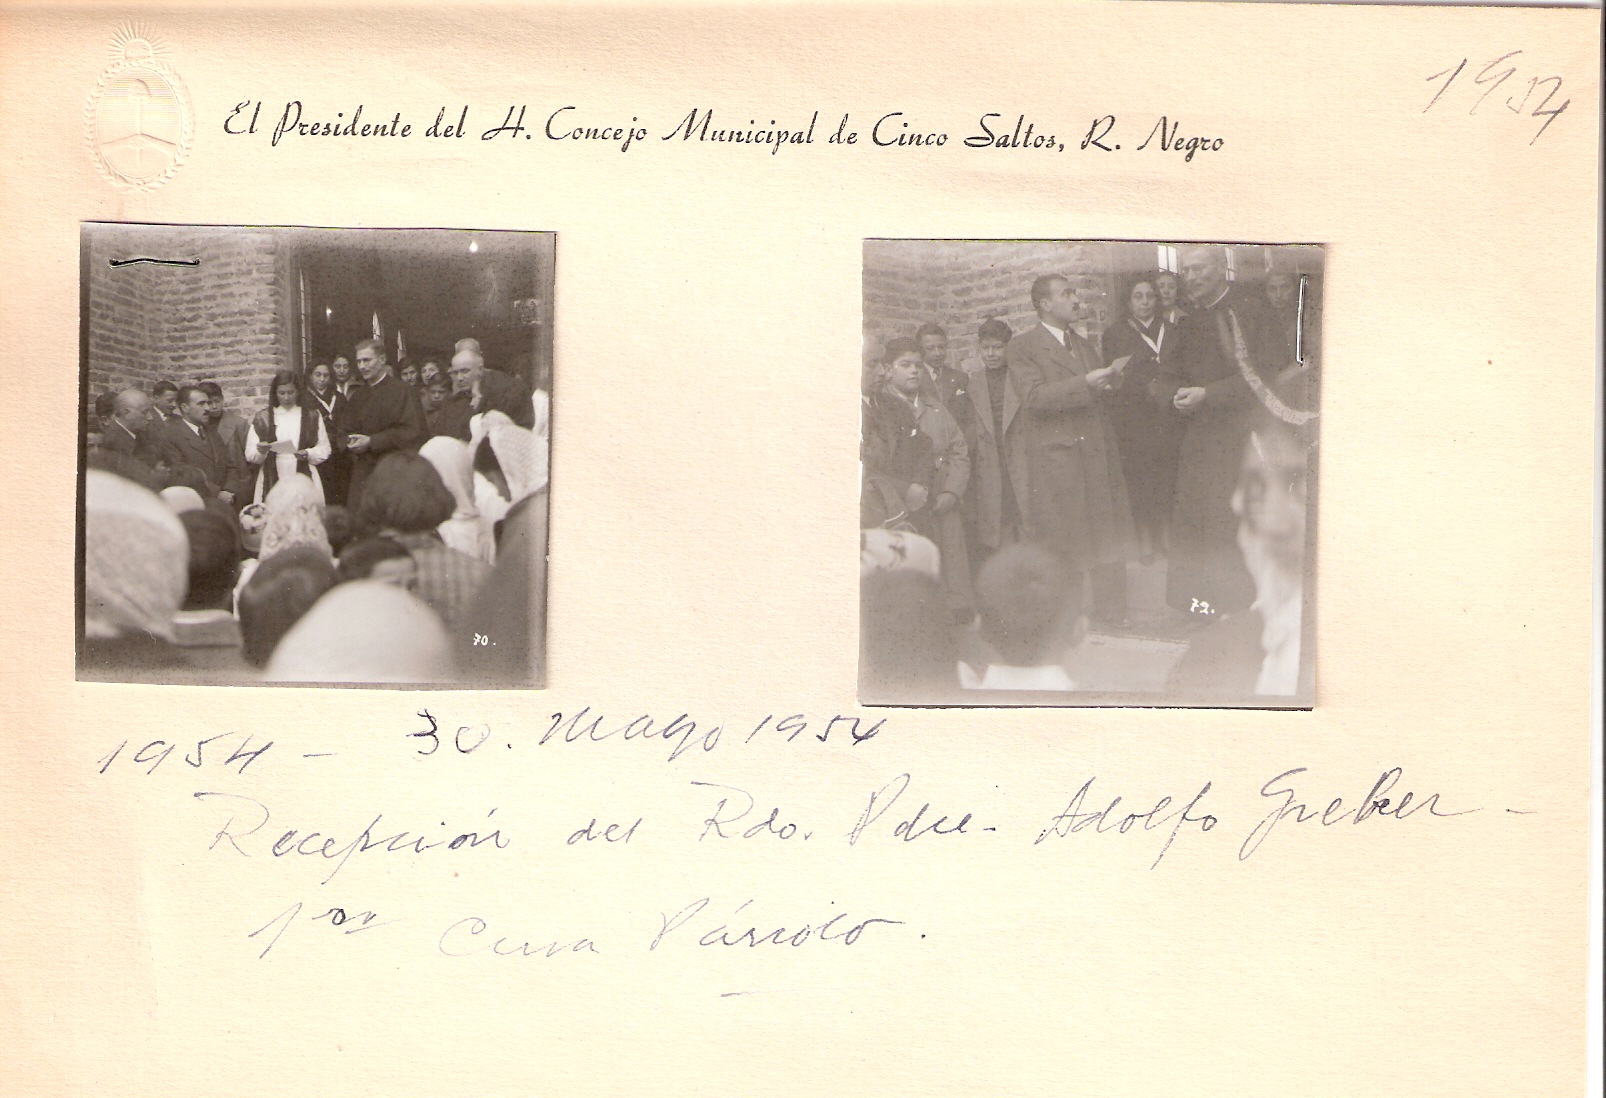 El Presidente del H. Concejo Municipal de Cinco Saltos, R. Negro
1954
70.
72.
1954 - 30. Mayo 1954
Recepción del Rdo. Pdre. Adolfo Greber -
1er Cura Párroco.